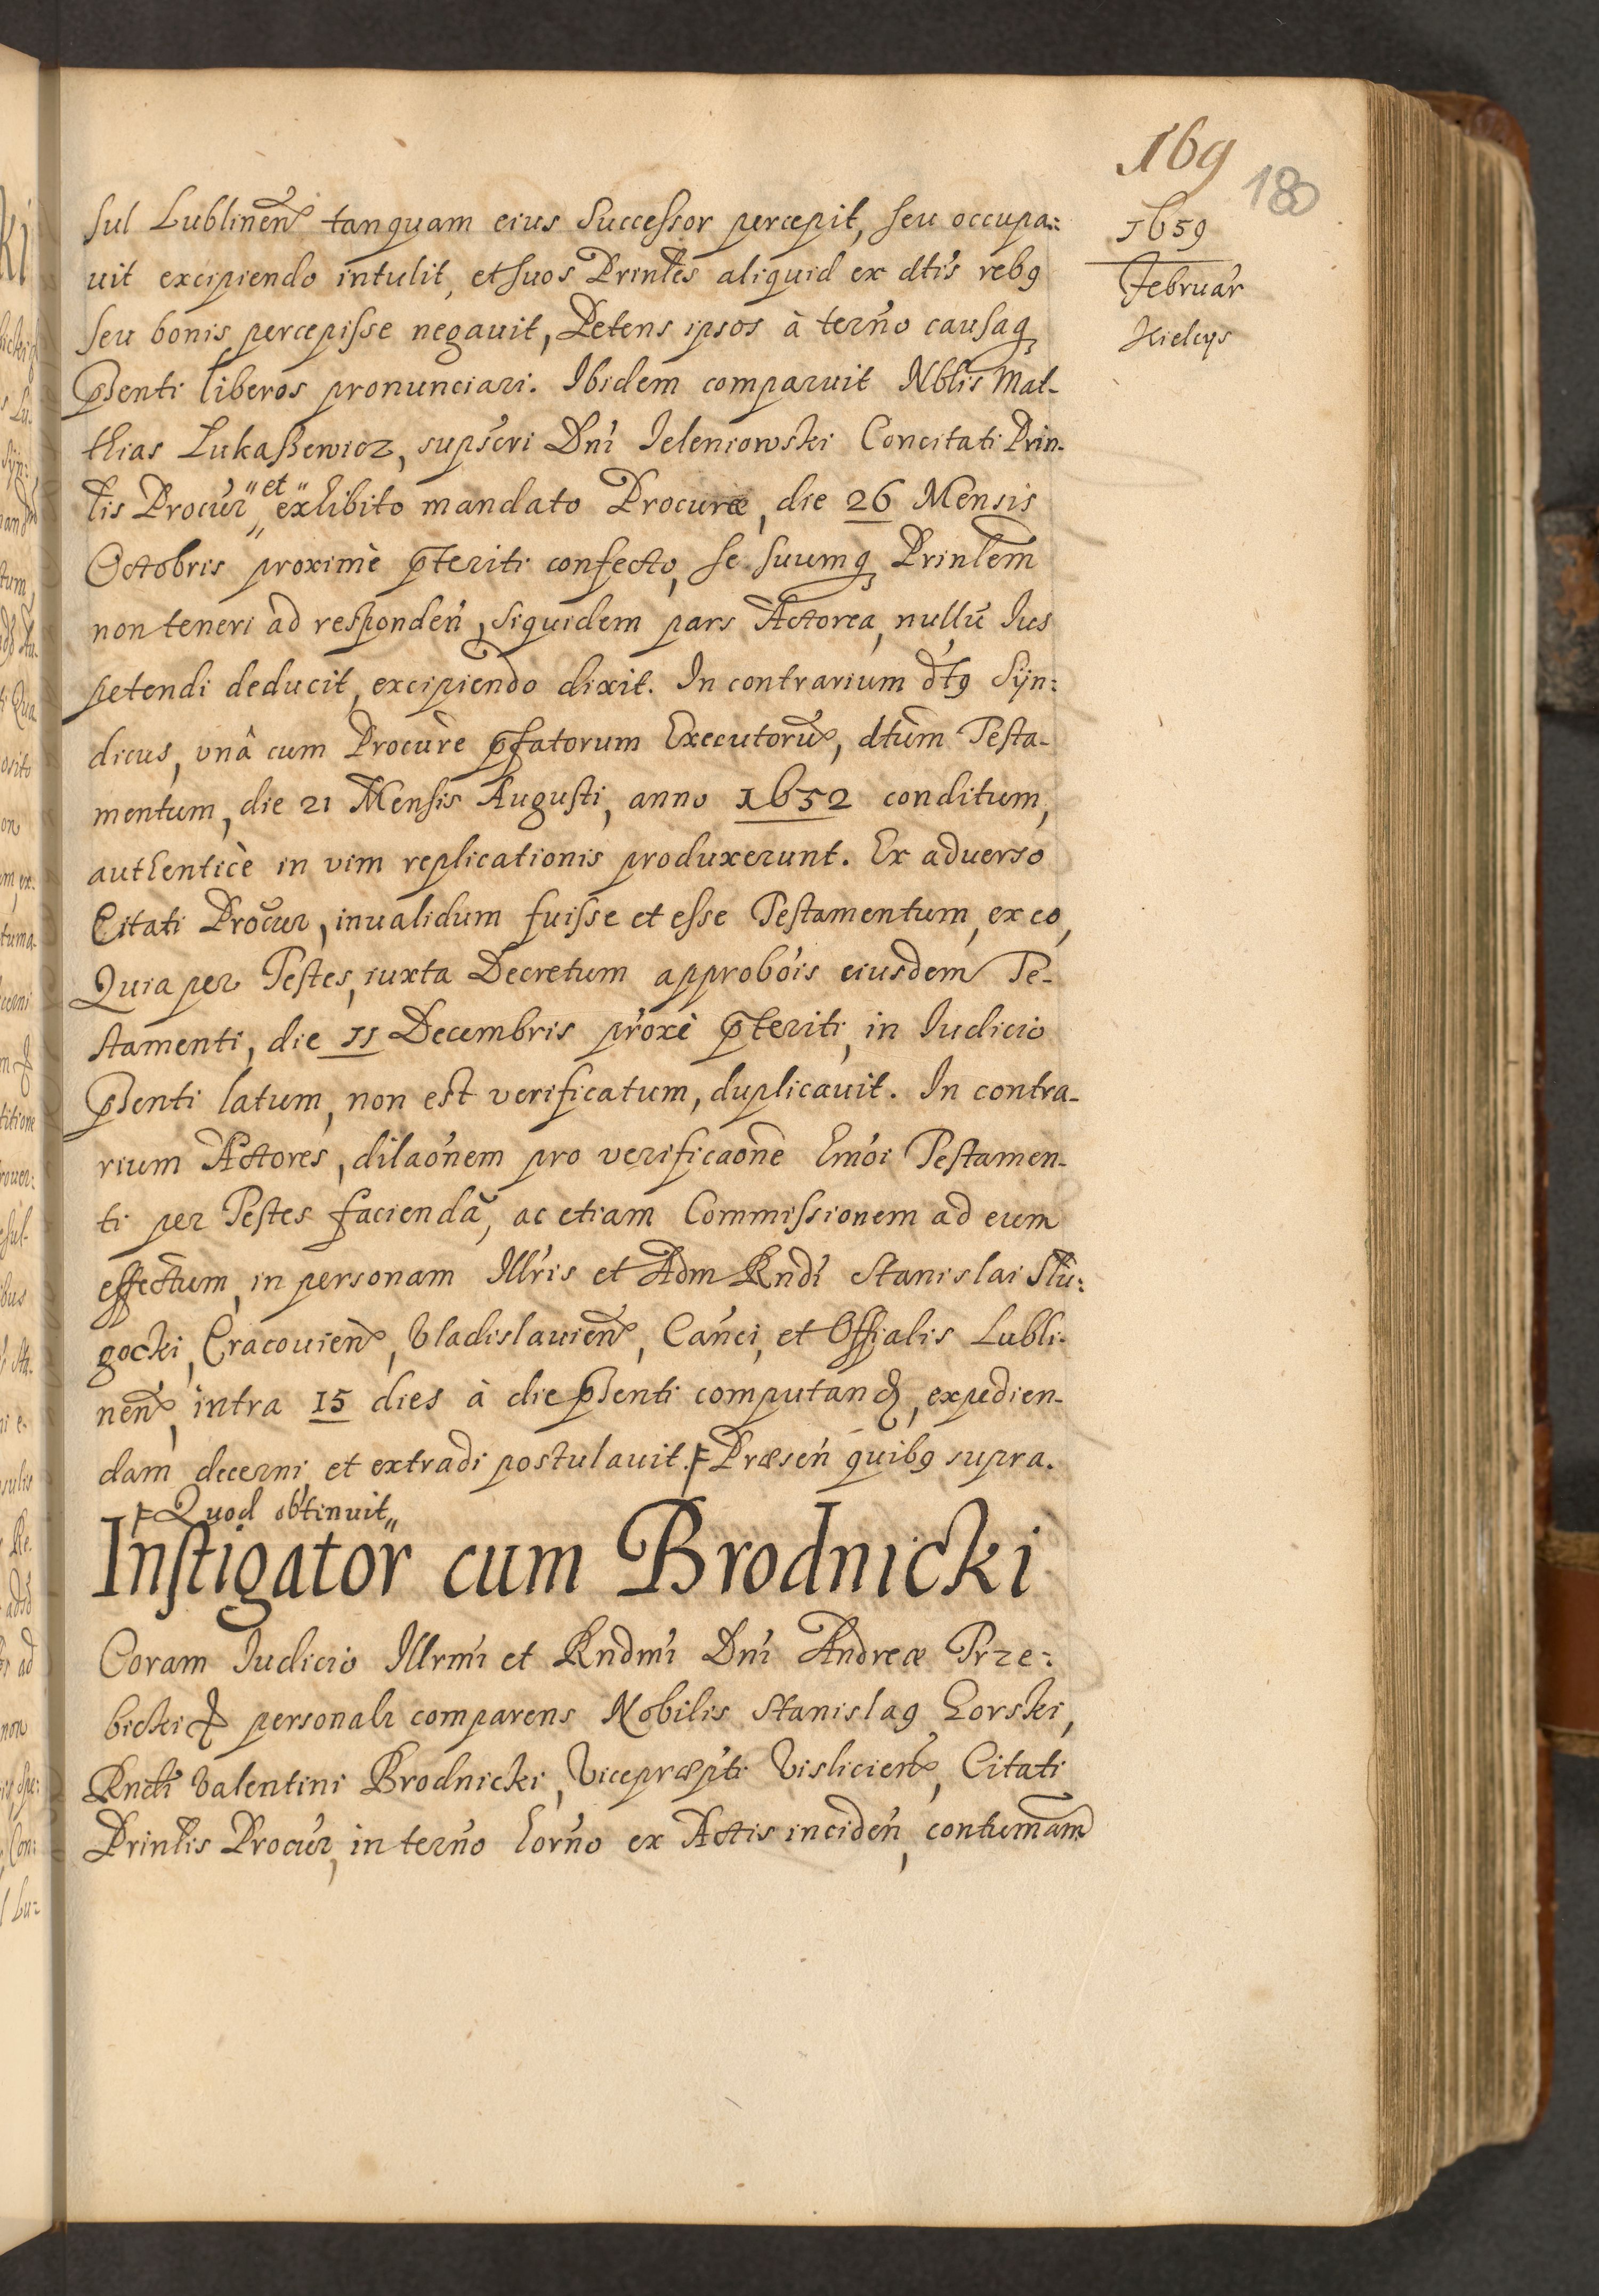 169
180
1659
Februar
Kielcys
sul Lublinen̄ tanquam eius Successor percepit, seu occupa:
uit excipiendo intulit, et suos Prinłes aliquid ex dtis rebꝯ
seu bonis percepisse negauit, Petens ipsos à tern̄o causaqꝫ
p̄senti liberos pronunciari. Ibidem comparuit Nblis Mat-
thias Lukaszewicz, supscri Dn̄i Jeleniowski Concitati Prin-
łis Procur̄ "et" exhibito mandato Procuræ, die 26 Mensis
Octobris proximè p̄teriti confecto, se suumqꝫ Prinłem
non teneri ad responden̄, siquidem pars Actorea, nullū Ius
petendi deducit, excipiendo dixit. In contrarium dtꝯ Sÿn:
dicus, vnâ cum Procur̄e p̄fatorum Executorū, dtum Testa-
mentum, die 21 Mensis Augusti, anno 1652 conditum,
authenticè in vim replicationis produxerunt. Ex aduerso
Citati Procur, inualidum fuisse et esse Testamentum, ex eo,
Quia per Testes, iuxta Decretum approbōis eiusdem Te-
stamenti, die 11 Decembris proxè p̄teriti, in Iudicio
p̄senti latum, non est verificatum, duplicauit. In contra-
rium Actores, dilaōnem pro verificaōne Em̄oi Testamen-
ti per Testes faciendā, ac etiam Commissionem ad eum
effectum, in personam Illris et Adm Rndi Stanislai Słu:
gocki, Cracouien̄, Vladislauien̄, Can̄ci, et Offialis Lubli-
nen̄, intra 15 dies à die p̄senti computand, expedien-
dam decerni et extradi postulauit. Ꞙ Præsen̄ quibꝯ supra.
Ꞙ Quod obtinuit "
Instigator cum Brodnicki
Coram Iudicio Illrmi et Rndmi Dn̄i Andreæ Trze:
bicki & personalr comparens Nobilis Stanislaꝯ Gorski,
Rndi Valentini Brodnicki, Vicepræpti Vislicien̄, Citati
Prinłis Procur̄, in tern̄o horn̄o ex Actis inciden̄, contumam̄